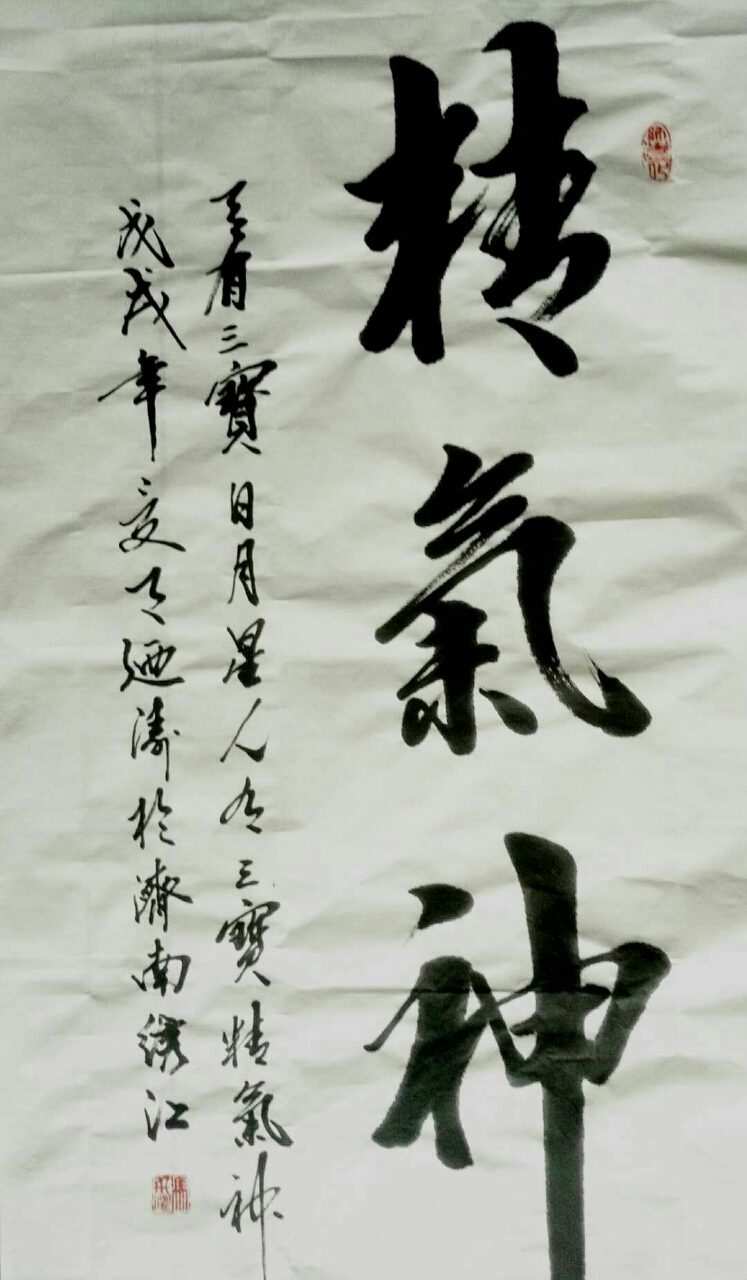 精氣神
天有三寶日月星人有三寶精氣神
戊戌年夏天迺濤於濟南綉江